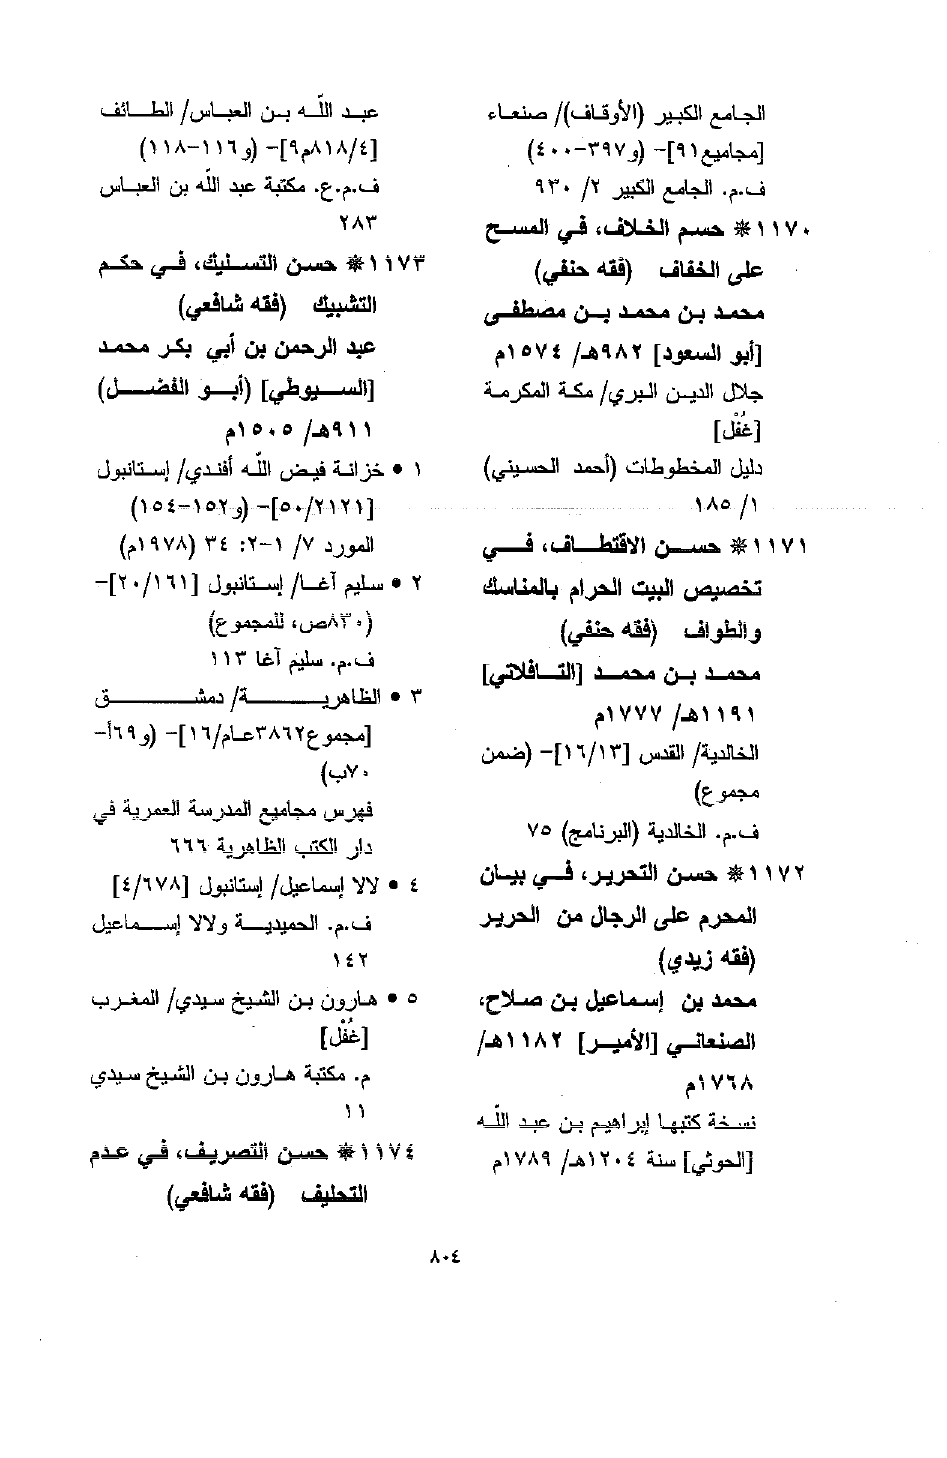 الجامع الكبير (الأوقاف)/ صنعاء
[مجاميع٩١]- (و٣٩٧-٤٠٠)
ف.م. الجامع الكبير ٢/ ٩٣٠
١١٧٠* حسم الخلاف، في المسح
على الخفاف (فقه حنفي)
محمد بن محمد بن مصطفى
[أبو السعود] ٩٨٢هـ/ ١٥٧٤م
جلال الدين البري/ مكة المكرمة
[غُفْل]
دليل المخطوطات (أحمد الحسيني)
١/ ١٨٥
١١٧١* حسن الاقتطاف، في
تخصيص البيت الحرام بالمناسك
والطواف (فقه حنفي)
محمد بن محمد [التافلاتي]
١١٩١هـ/ ١٧٧٧م
الخالدية/ القدس [١٦/١٣]- (ضمن
مجموع)
ف.م. الخالدية (البرنامج) ٧٥
١١٧٢* حسن التحرير، في بيان
المحرم على الرجال من الحرير
(فقه زيدي)
محمد بن إسماعيل بن صلاح،
الصنعاني [الأمير] ١١٨٢هـ/
١٧٦٨م
نسخة كتبها إبراهيم بن عبد اللّه
[الحوثي] سنة ١٢٠٤هـ/ ١٧٨٩م
عبد اللّه بن العباس/ الطائف
[٨١٨/٤م٩]- (و١١٦-١١٨)
ف.م.ع. مكتبة عبد اللّه بن العباس
٢٨٣
١١٧٣* حسن التسليك، في حكم
التشبيك (فقه شافعي)
عبد الرحمن بن أبي بكر محمد
[السيوطي] (أبو الفضل)
٩١١هـ/ ١٥٠٥م
١ • خزانة فيض اللّه أفندي/ إستانبول
[٥٠/٢١٢١]- (و١٥٢-١٥٤)
المورد ٧/ ١-٢: ٣٤ (١٩٧٨م)
٢ • سليم آغا/ إستانبول [٢٠/١٦١]-
(٨٣٠ص، للمجموع)
ف.م. سليم آغا ١١٣
٣ • الظاهرية/ دمشق
[مجموع٣٨٦٢عام/١٦]- (و٦٩أ-
٧٠ب)
فهرس مجاميع المدرسة العمرية في
دار الكتب الظاهرية ٦٦٦
٤ • لالا إسماعيل/ إستانبول [٤/٦٧٨]
ف.م. الحميدية ولالا إسماعيل
١٤٢
٥ • هارون بن الشيخ سيدي/ المغرب
[غُفْل]
م. مكتبة هارون بن الشيخ سيدي
١١
١١٧٤* حسن التصريف، في عدم
التحليف (فقه شافعي)
٨٠٤